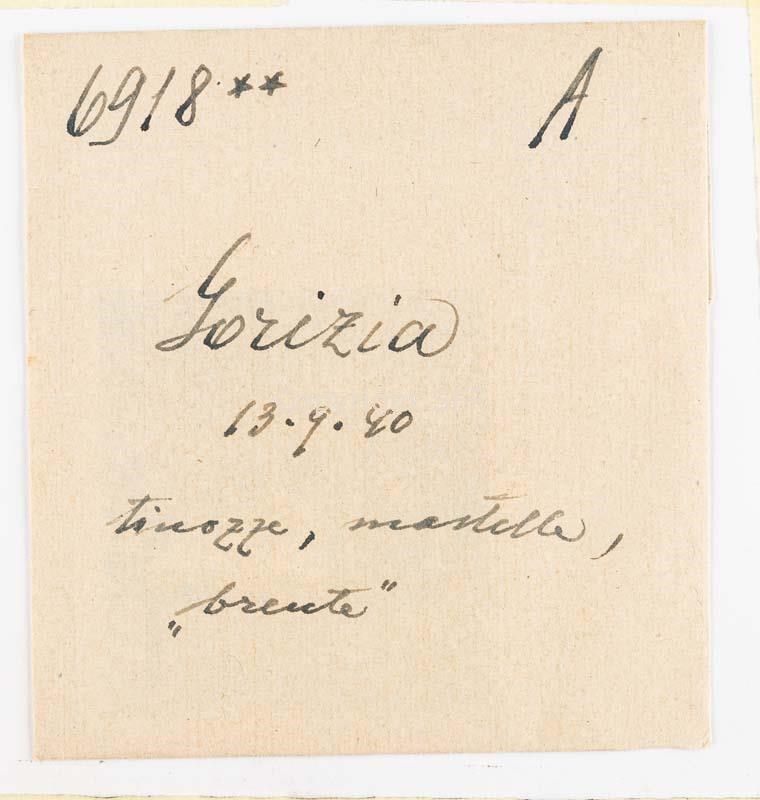 6918** A
Gorizia
13.9.40
tinozze, mastelle,
„brente"